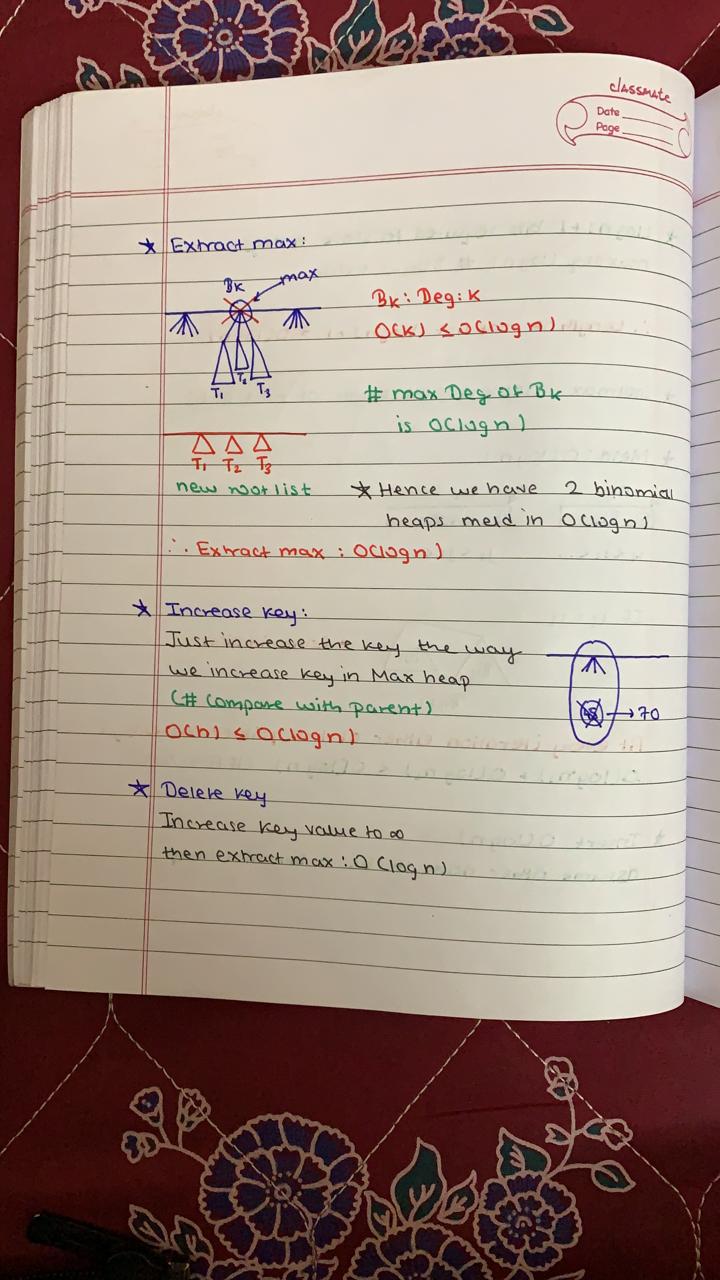 classmate
Date
Page
★ Extract max:
Bk
max
Bk: Deg: K
O(K) ≤ O(log n)
T1 T2 T3
# max Deg of Bk
is O(log n)
T1 T2 T3
new root list
★ Hence we have 2 binomial
heaps meld in O(log n)
∴ Extract max : O(log n)
★ Increase key:
Just increase the key the way
we increase key in Max heap
(# compare with parent)
→ 70
O(h) ≤ O(log n)
★ Delete key
Increase key value to ∞
then extract max : O(log n)